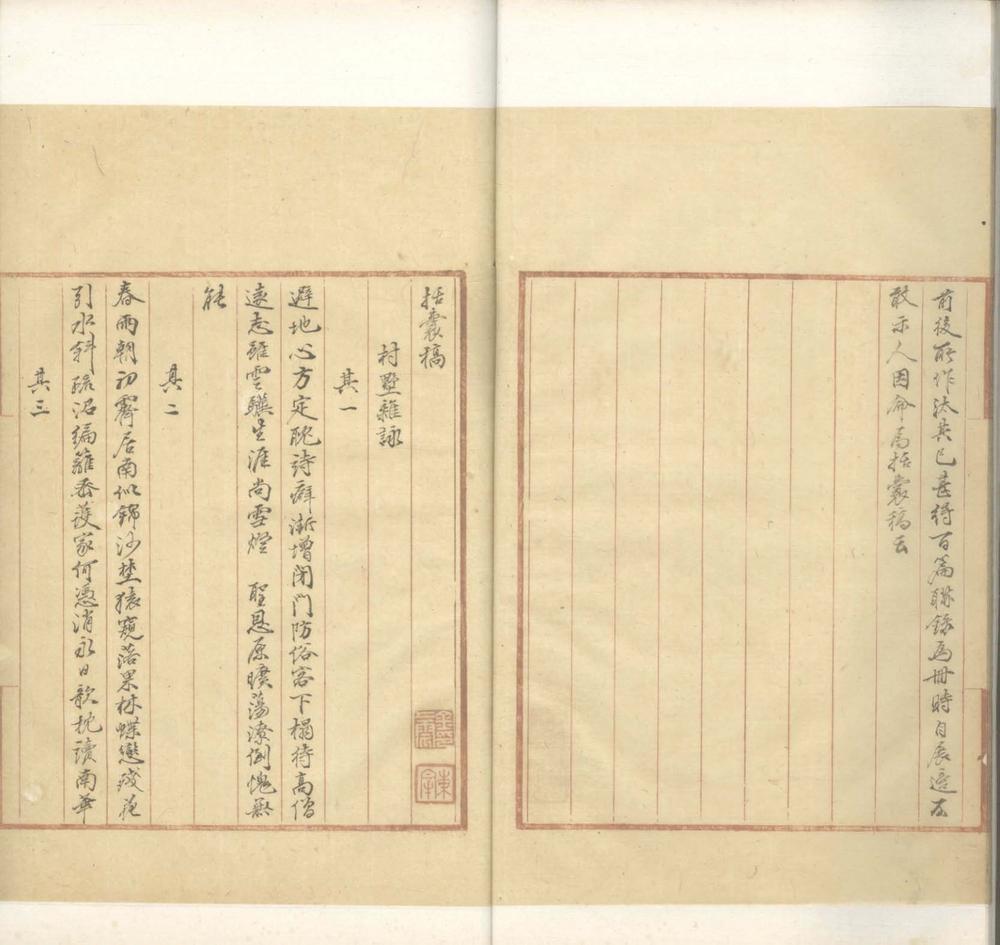 前後所作汰其已甚得百篇聯錄為冊時自展逰不
敢示人因命為括囊稿云
括囊稿
村墅雜詠
其一
避地心方定耽詩癖漸增閉門防俗客下榻待高僧
遠志雖雲驥生涯尚雪燈 聖恩原曠蕩潦倒愧無
能
其二
春雨朝初霽居南似錦沙埜猿窺落果林蝶戀殘花
引水斜臨沼編籬委護家何憑消永日欹枕讀南華
其三